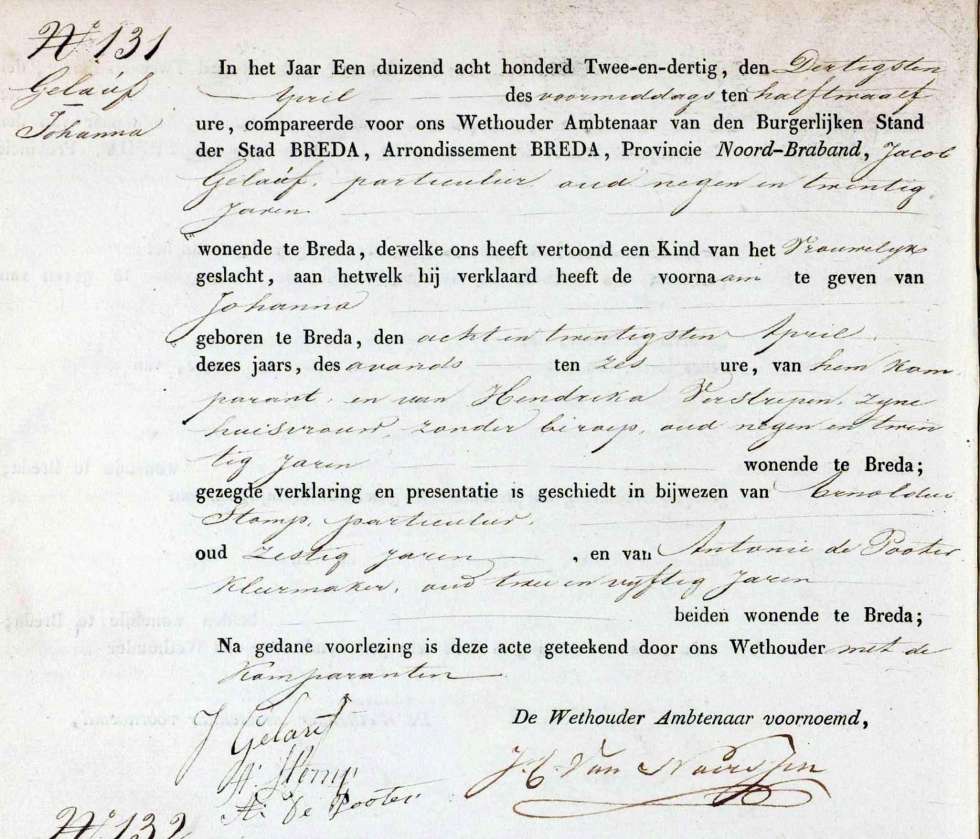 N° 131
Gelaúf
Johanna
In het Jaar Een duizend acht honderd Twee-en-dertig, den Dertigsten
April des voormiddags ten half twaalf
ure, compareerde voor ons Wethouder Ambtenaar van den Burgerlijken Stand
der Stad BREDA, Arrondissement BREDA, Provincie Noord-Braband, Jacob
Gelaúf, particulier, oud negen en twintig
jaren
wonende te Breda, dewelke ons heeft vertoond een Kind van het Vrouwelijk
geslacht, aan hetwelk hij verklaard heeft de voornaam te geven van
Johanna
geboren te Breda, den acht en twintigsten April
dezes jaars, des avonds ten zes ure, van hem kom-
parant, en van Hendrika Verstrepen, zyne
huisvrouw, zonder beroep, oud negen en twin
tig jaren wonende te Breda;
gezegde verklaring en presentatie is geschiedt in bijwezen van Arnoldus
Stomp, particulier,
oud zestig jaren, en van Antonie de Pooter
kleermaker, oud twee en vyftig jaren
beiden wonende te Breda;
Na gedane voorlezing is deze acte geteekend door ons Wethouder met de
komparanten
De Wethouder Ambtenaar voornoemd,
J Gelauf
A: Stomp
A: de Pooter
N° 132